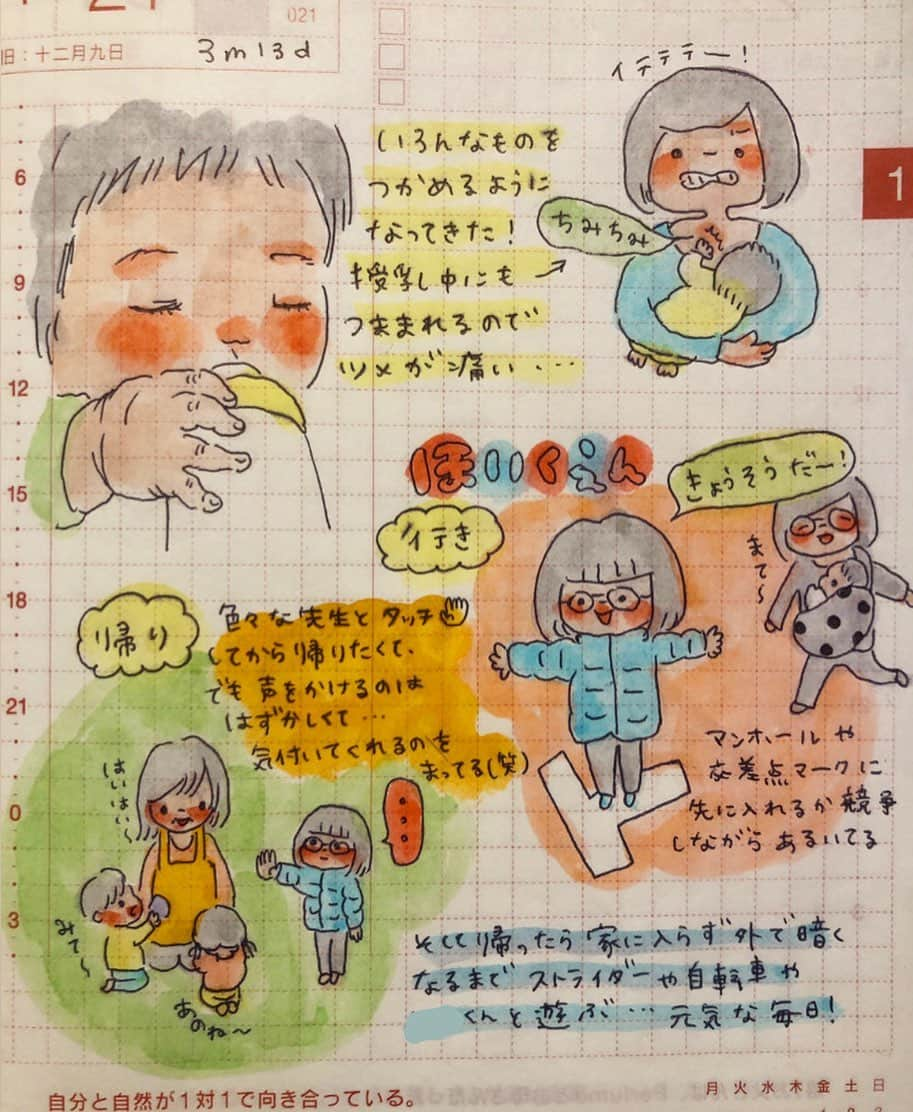 21
021
旧：十二月九日
3m13d
いろんなものを
つかめるように
なってきた！
授乳し中にも
つままれるので
ツメが痛い…
イテテテー！
ちみちみ
1
6
9
12
15
18
21
0
3
ほいくえん
行き
きょうそうだー！
まて〜
マンホールや
交差点マークに
先に入れるか競争
しながらあるいてる
帰り
色々な先生とタッチ
してから帰りたくて、
でも声をかけるのは
はずかしくて…
気付いてくれるのを
まってる(笑)
はいはい〜
みて〜
あのね〜
そして帰ったら家に入らず外で暗く
なるまでストライダーや自転車や
くんと遊ぶ…元気な毎日！
自分と自然が１対１で向き合っている。
月火水木金土日